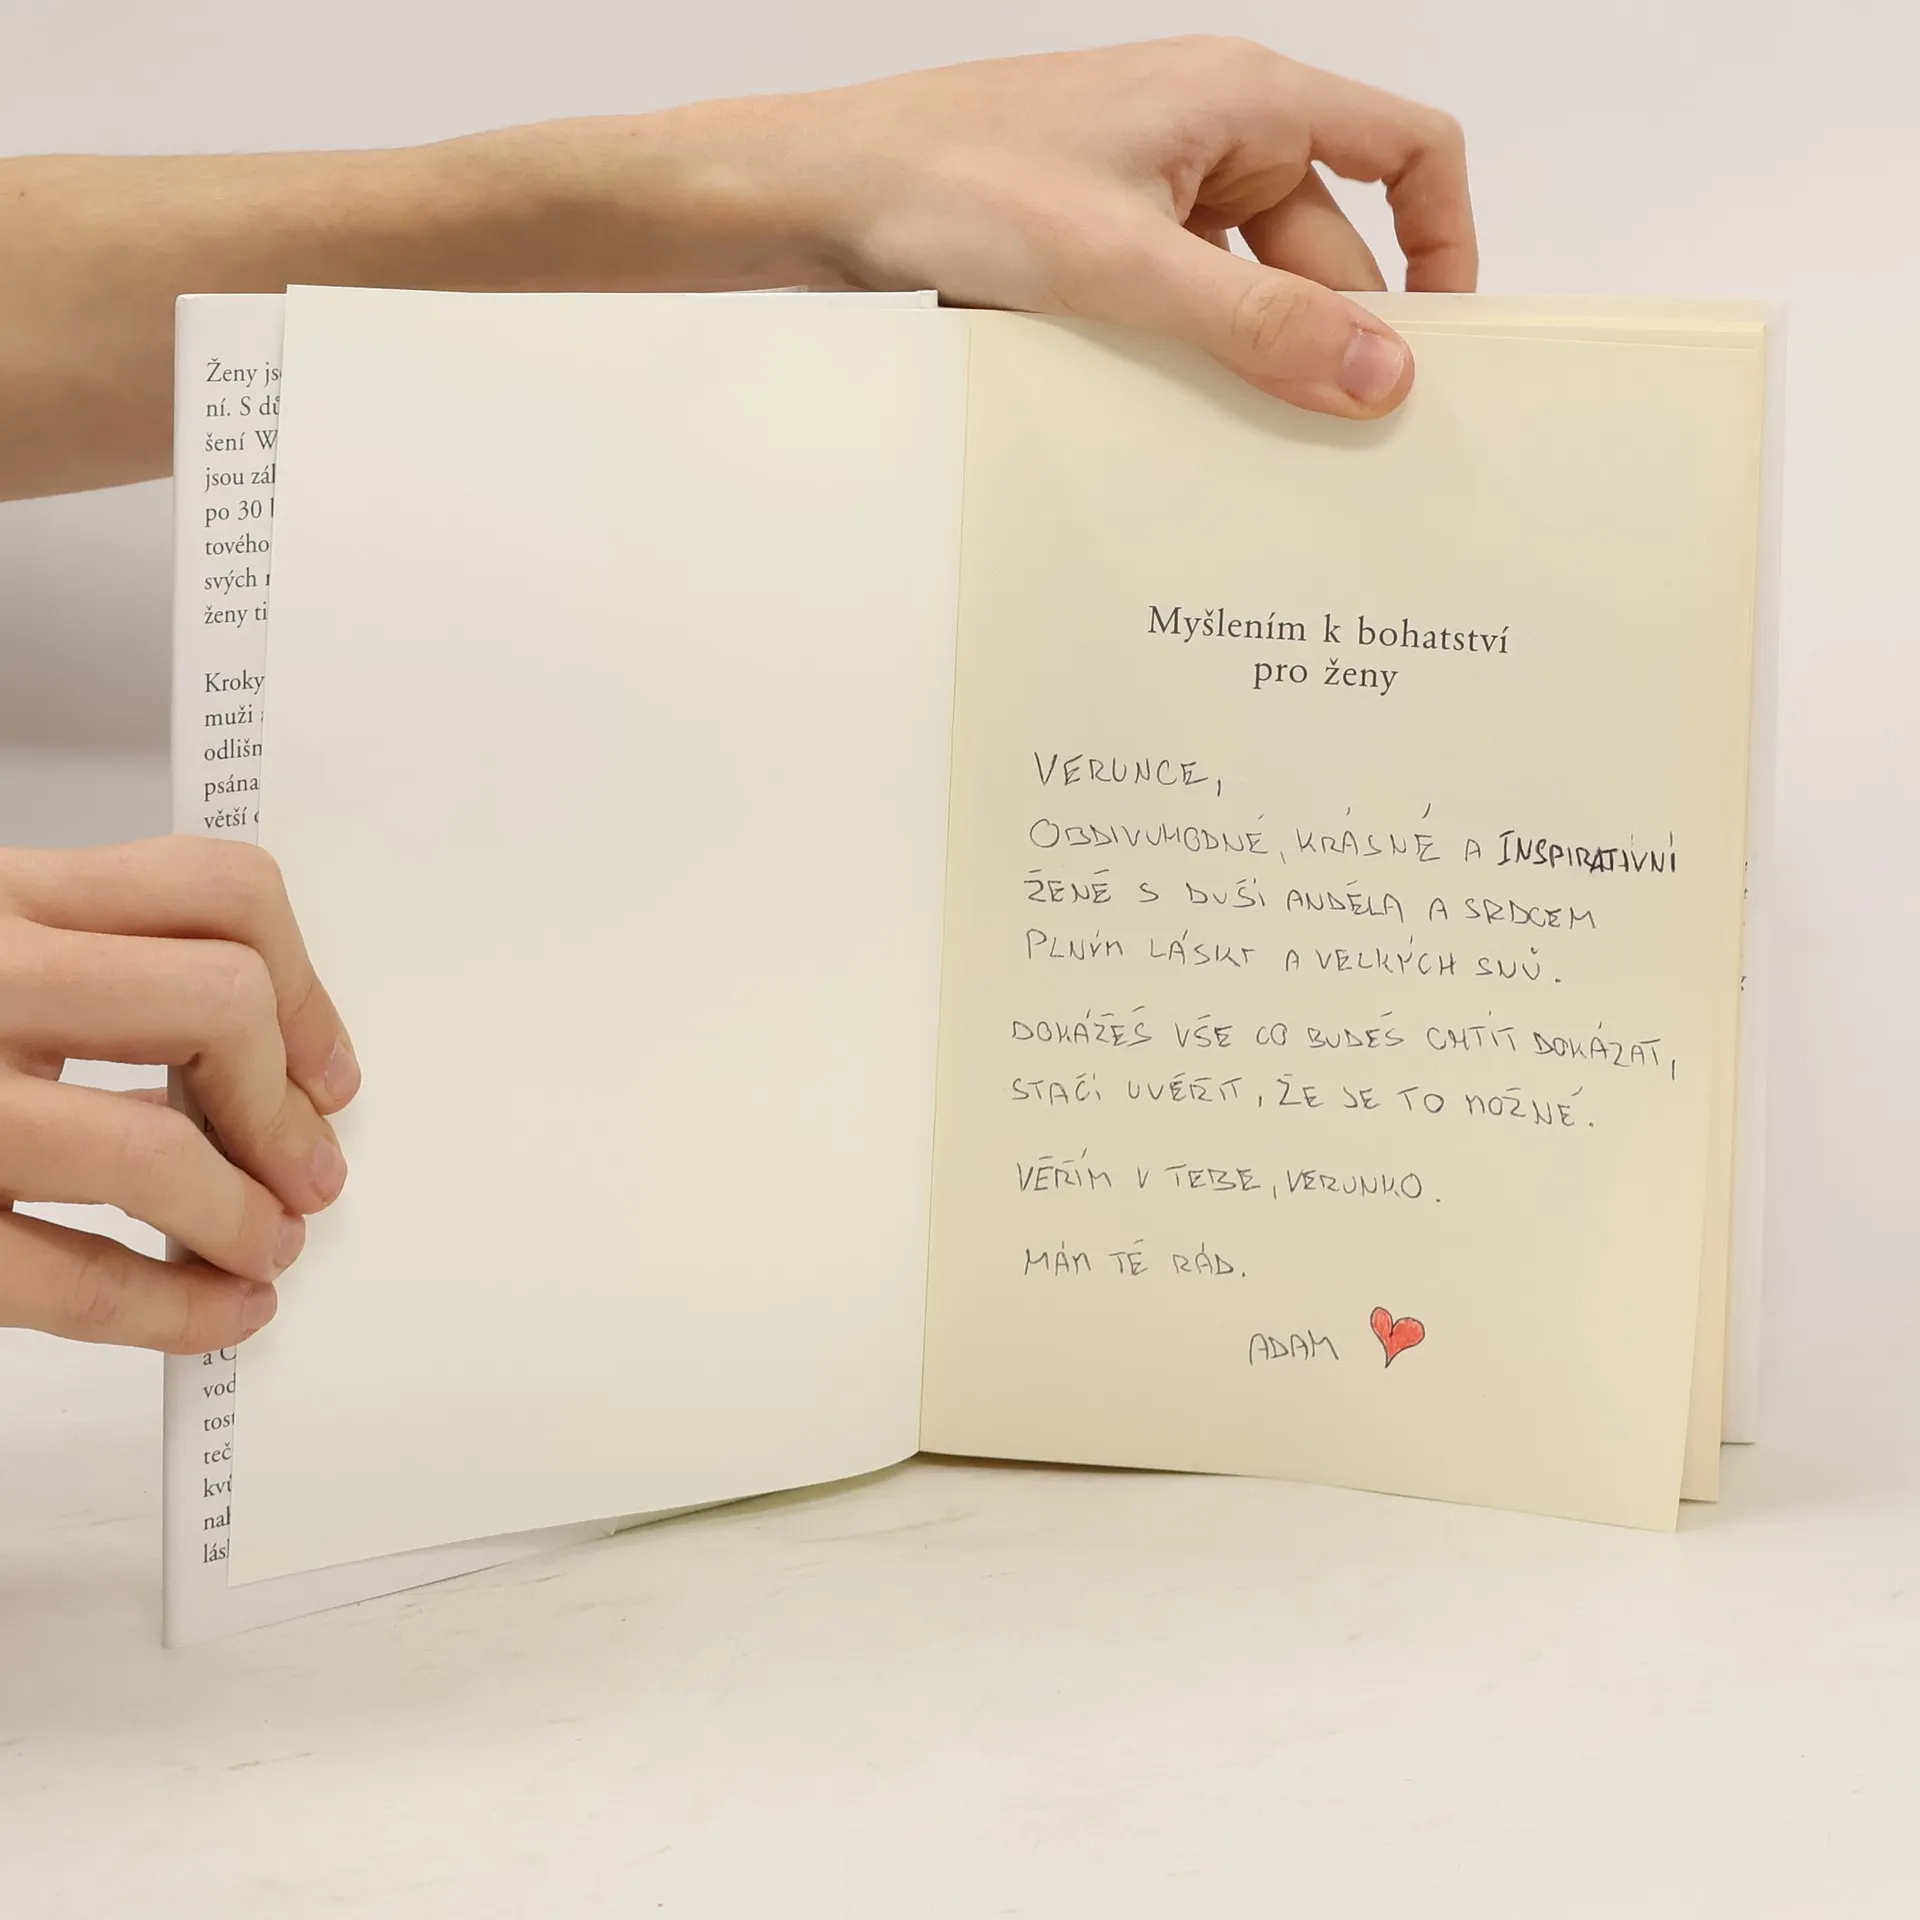 Ženy js
ní. S dů
šení W
jsou zák
po 30 l
tového
svých
ženy ti
Kroky
muži
odlišn
psána
větší
a C
vod
tost
teč
kvů
nah
lás
Myšlením k bohatství
pro ženy
VERUNCE,
OBDIVUHODNÉ, KRÁSNÉ A INSPIRATIVNÍ
ŽENĚ S DUŠÍ ANDĚLA A SRDCEM
PLNÝM LÁSKY A VELKÝCH SNŮ.
DOKÁŽEŠ VŠE CO BUDEŠ CHTÍT DOKÁZAT,
STAČÍ UVĚŘIT, ŽE JE TO MOŽNÉ.
VĚŘÍM V TEBE, VERUNKO.
MÁM TĚ RÁD.
ADAM